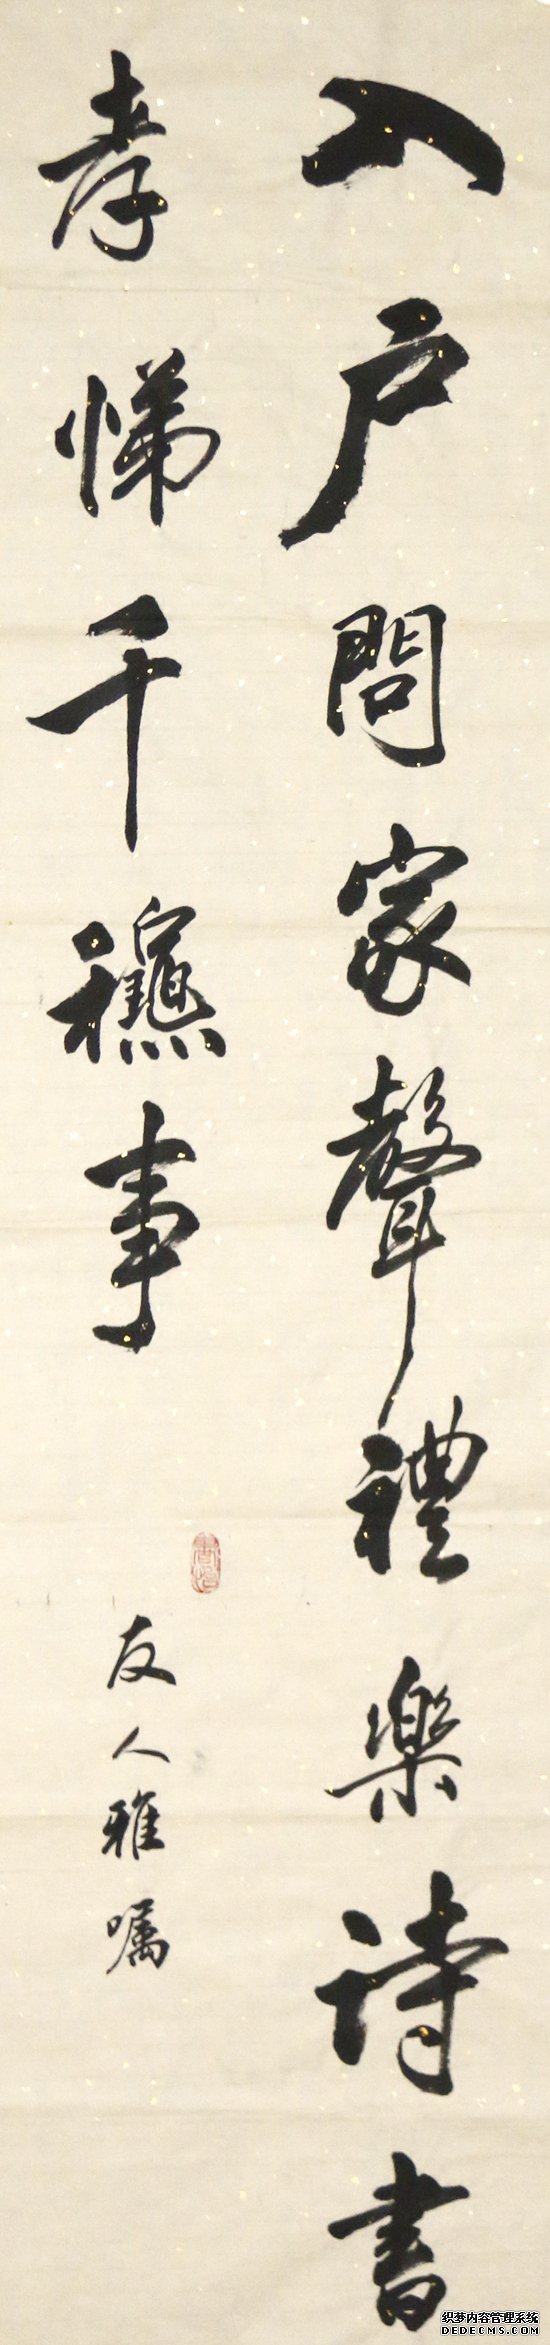 入户問家聲禮樂詩書
孝悌千龝事
友人雅嘱
织梦内容管理系统
DEDECMS.COM